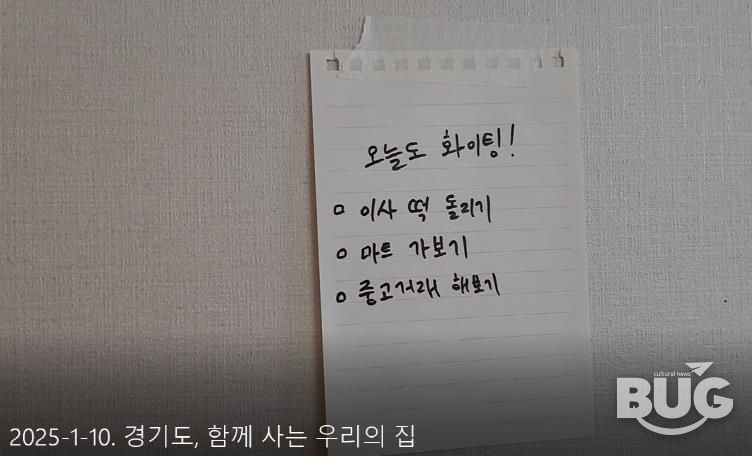 오늘도 화이팅!
이사 떡 돌리기
마트 가보기
중고거래 해보기
cultural news
BUG
2025-1-10. 경기도, 함께 사는 우리의 집